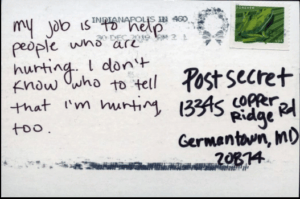 INDIANAPOLIS IN 460
30 DEC 2019 PM 2 L
my job is to help
people who are
hurting. I don't
know who to tell
that I'm hurting,
too.
PostSecret
13345 Copper
Ridge Rd
Germantown, MD
20874